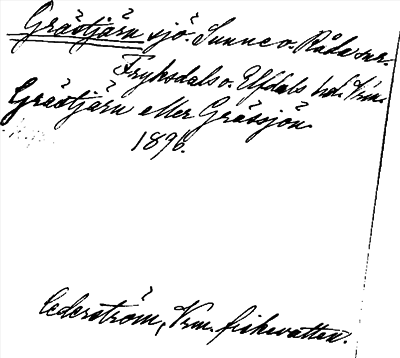 Gråstjärn sjö. Sunne o. Råda snr.
Fryksdals o. Elfdals hd. Vrm.
Gråstjärn eller Gråssjön.
1896.
Cederström, Vrm. fiskevatten.